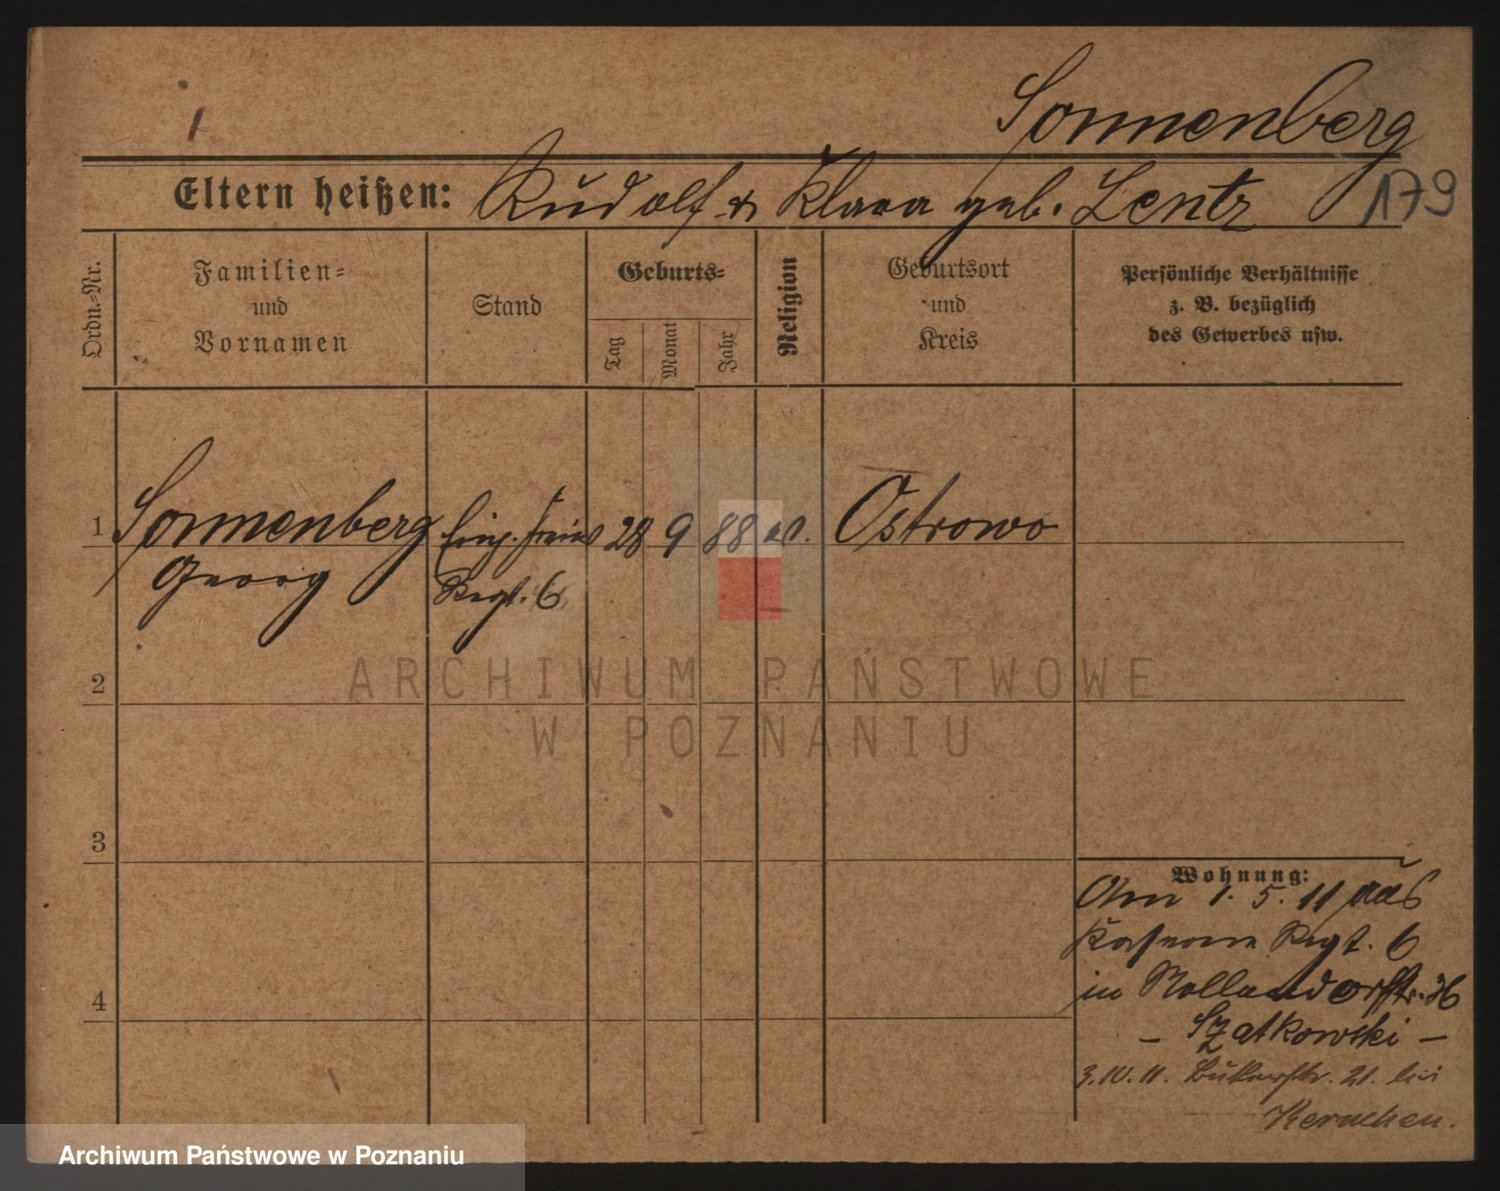 1
Sonnenberg
Eltern heißen: Rudolf & Klara geb. Lentz 179
Ordn.-Nr.
Familien-
und
Vornamen
Stand
Geburts-
Tag
Monat
Jahr
Religion
Geburtsort
und
Kreis
Persönliche Verhältnisse
z. B. bezüglich
des Gewerbes usw.
1 Sonnenberg Einj. Freiw 28 9 88 ev. Ostrowo
Georg Regt. 6
ARCHIWUM PAŃSTWOWE
W POZNANIU
2
3
Wohnung:
Am 1. 5. 11 aus
Kaserne Regt. 6
in Nollendorfstr. 36
– Szatkowski –
4
3.10.11. Bukerstr. 21. bei
Kerachen.
Archiwum Państwowe w Poznaniu